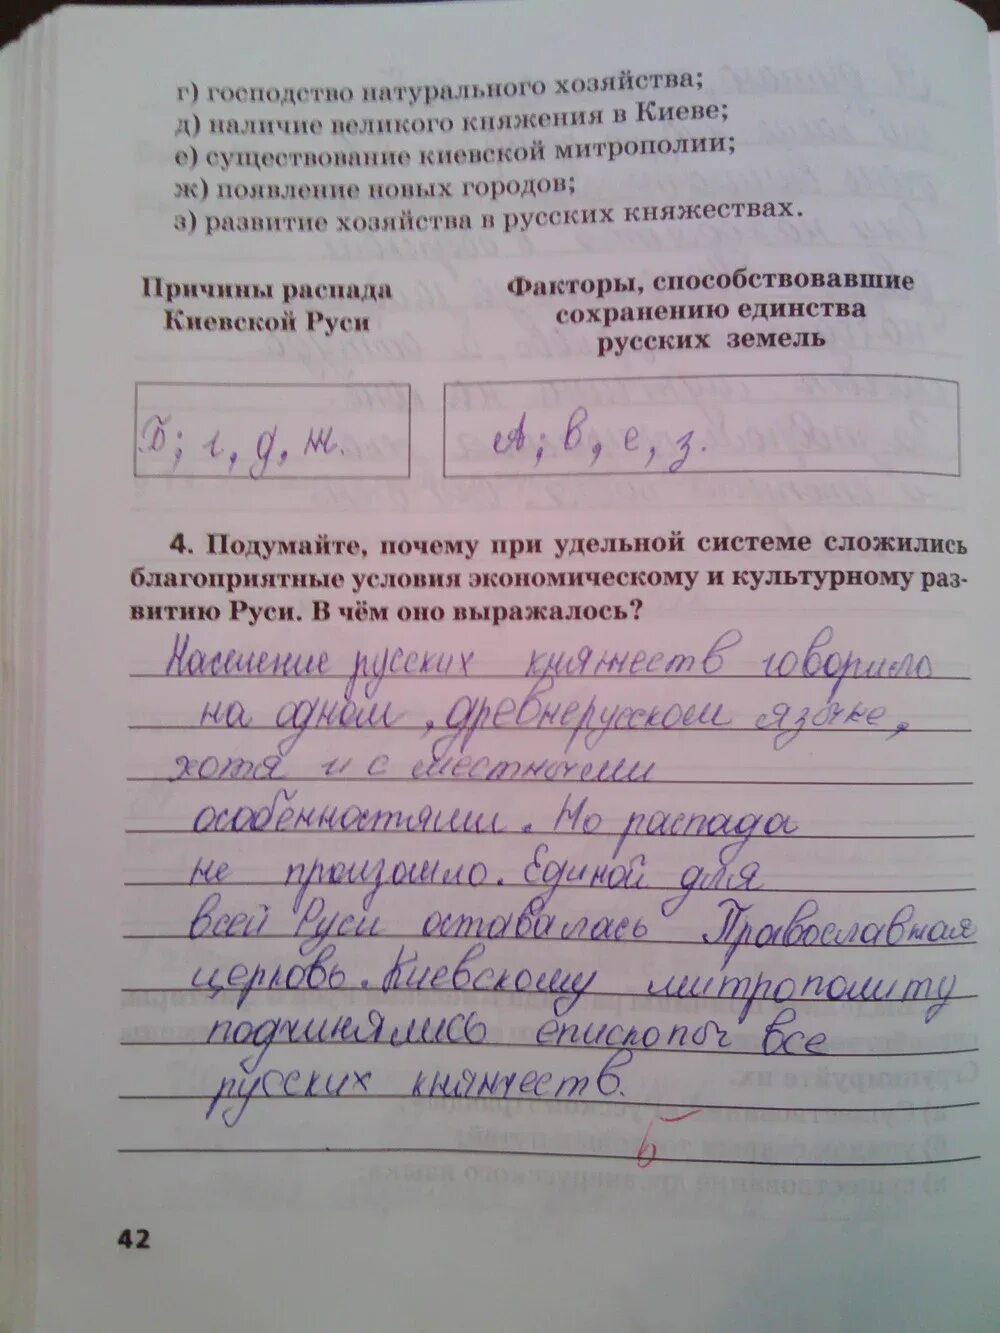 г) господство натурального хозяйства;
д) наличие великого княжения в Киеве;
е) существование киевской митрополии;
ж) появление новых городов;
з) развитие хозяйства в русских княжествах.
Причины распада
Киевской Руси
Факторы, способствовавшие
сохранению единства
русских земель
Б; г, д, ж.
А; в, е, з.
4. Подумайте, почему при удельной системе сложились
благоприятные условия экономическому и культурному раз-
витию Руси. В чём оно выражалось?
Население русских княжеств говорило
на одном, древнерусском языке,
хотя и с местными
особенностями. Но распада
не произошло. Единой для
всей Руси оставалась Православная
церковь. Киевскому митрополиту
подчинялись епископы все
русских княжеств.
5
42